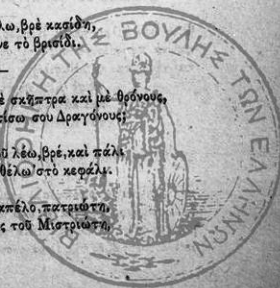 λω,βρὲ κασίδη,
νε τὸ βρισίδι.
ὲ σκῆπτρα καὶ μὲ θρόνους,
πίσω σου Δραγόνους;
ῦ λέω,βρέ,καὶ πάλι
θέλω 'στὸ κεφάλι.
απέλο,πατριώτη,
ς τοῦ Μιστριώτη,
ΒΙΒΛΙΟΘΗΚΗ ΤΗΣ ΒΟΥΛΗΣ ΤΩΝ ΕΛΛΗΝΩΝ